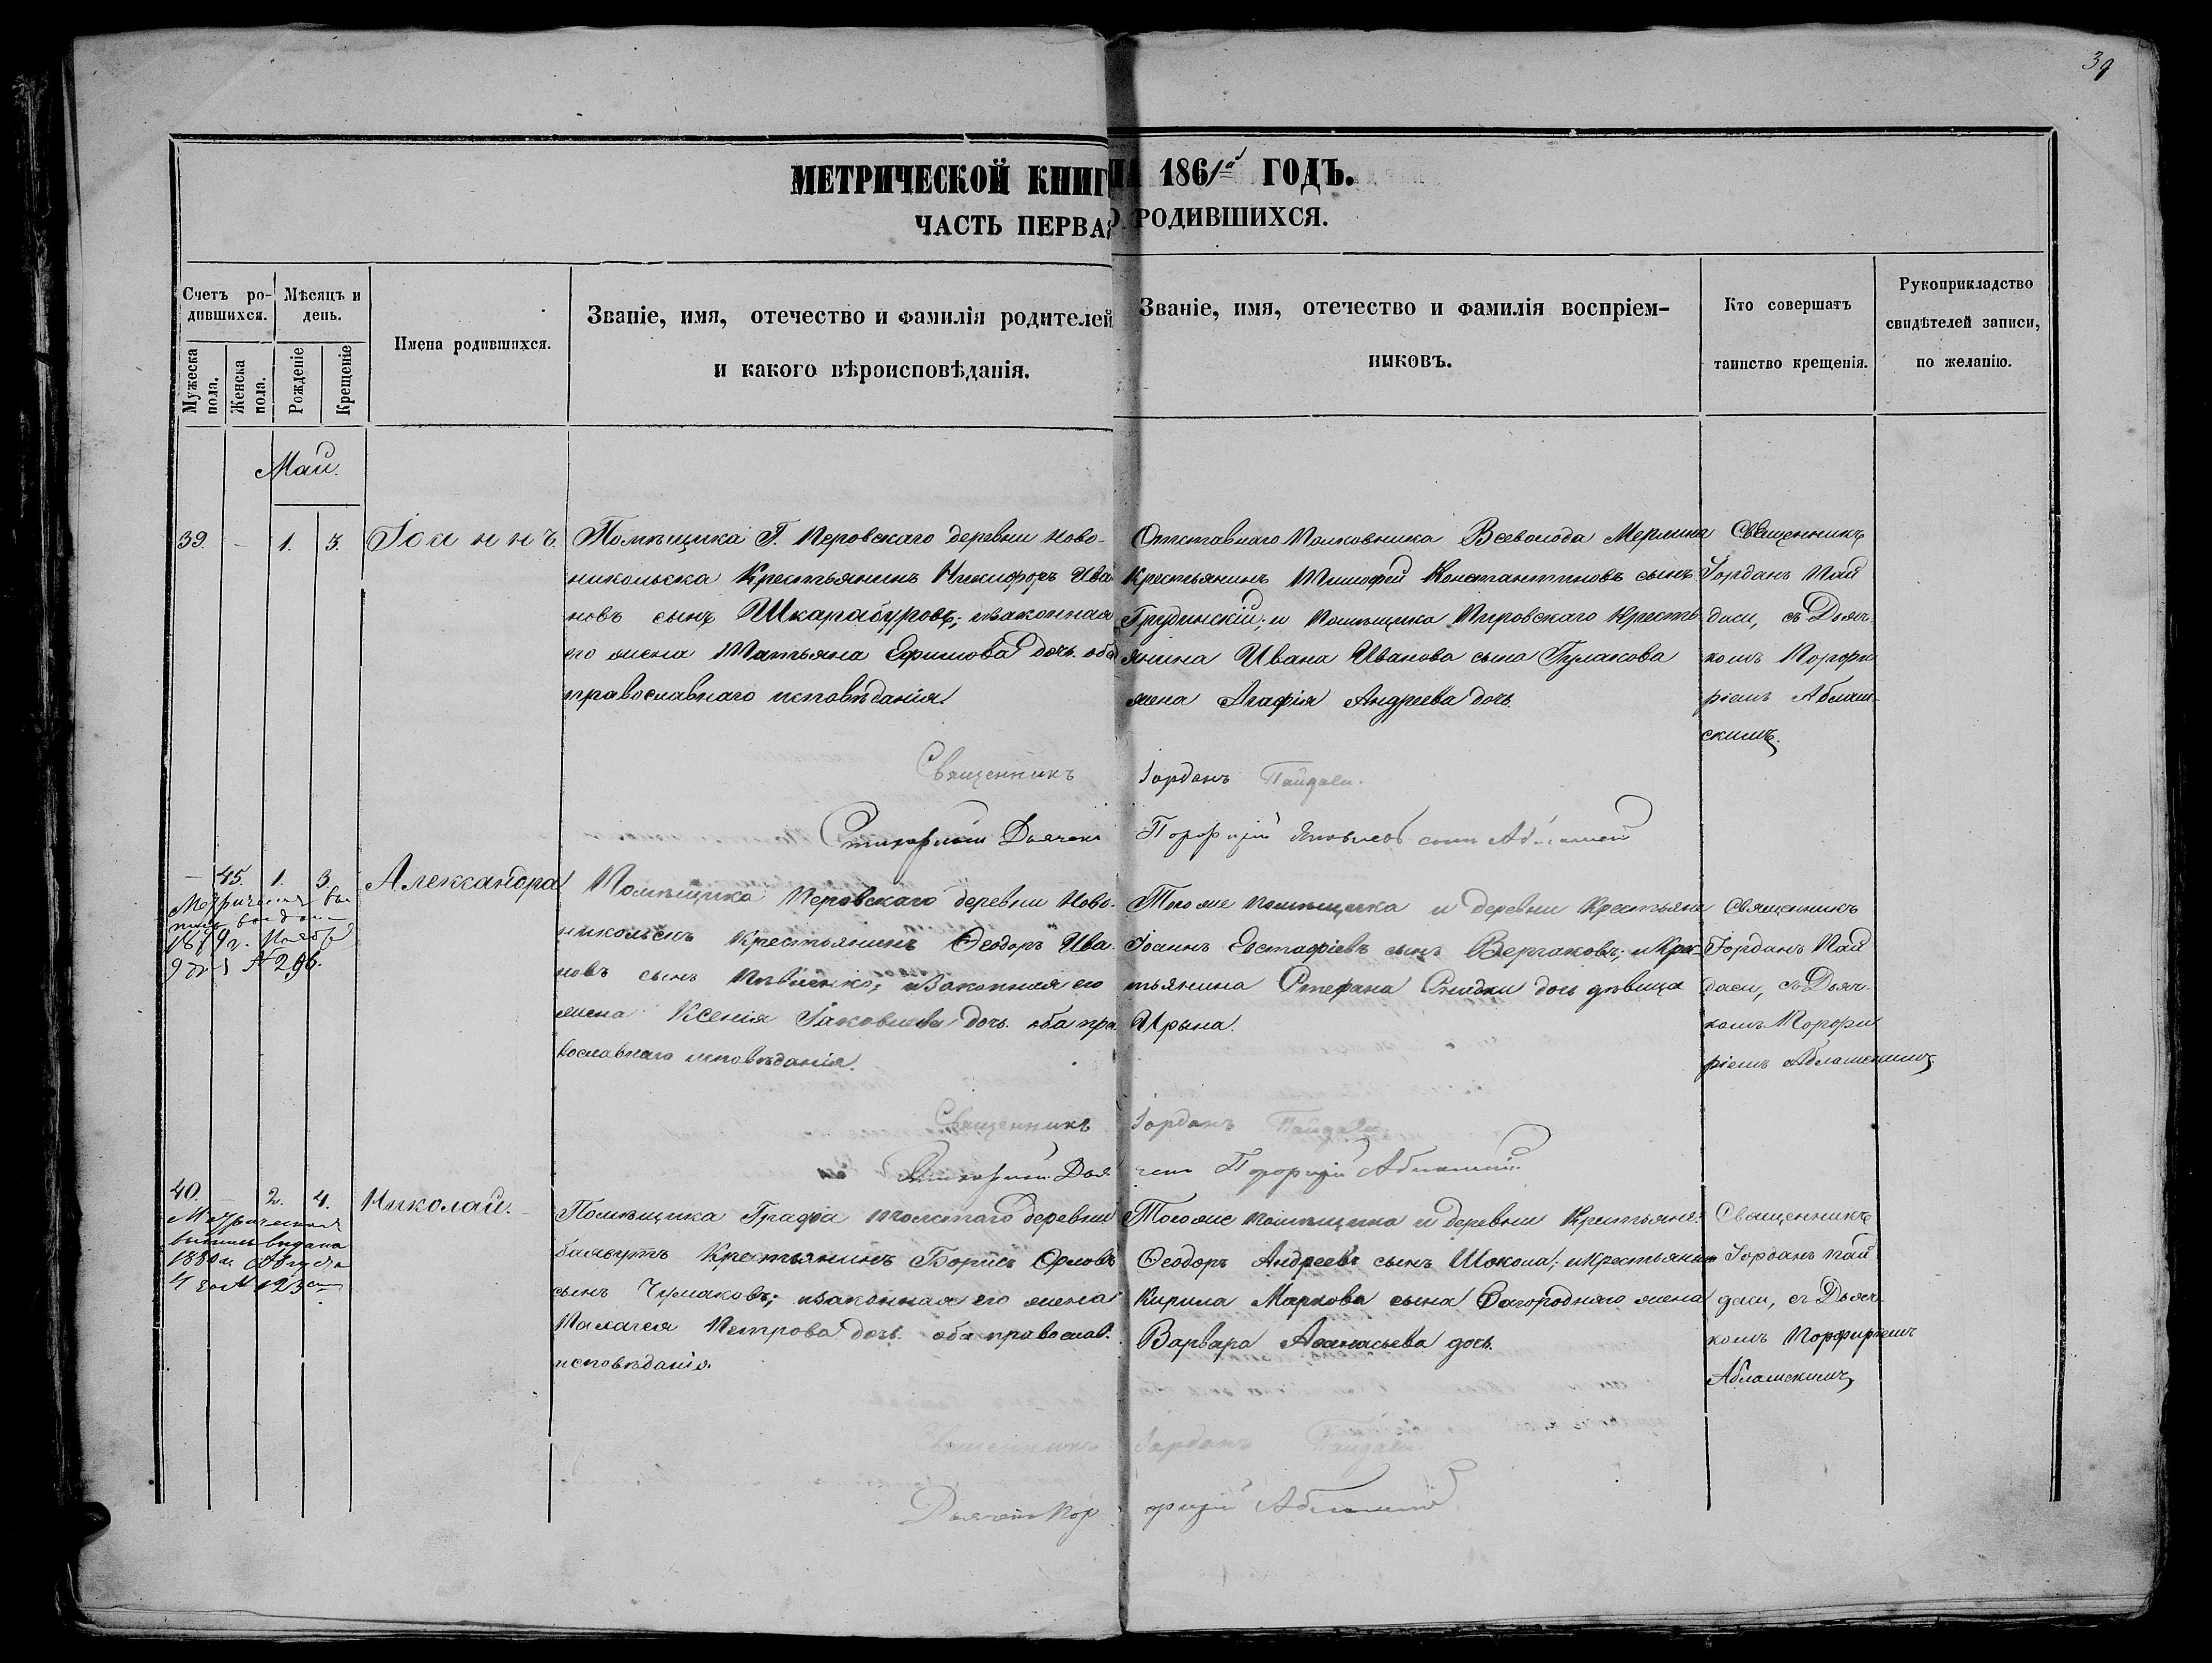 39
МЕТРИЧЕСКОЙ КНИГ НА 1861го ГОДЪ.
ЧАСТЬ ПЕРВАЯ О РОДИВШИХСЯ.
Счетъ ро-
дившихся.
Мужеска пола.
Женска пола.
Мѣсяцъ и
день.
Рожденіе
Крещеніе
Имена родившихся.
Званіе, имя, отечество и фамилія родителей
и какого вѣроисповѣданія.
Званіе, имя, отечество и фамилія воспріем-
никовъ.
Кто совершатъ
таинство крещенія.
Рукоприкладство
свидѣтелей записи,
по желанію.
Май.
39. – 1. 3. Іоаннъ.
Помѣщика Г. Перовскаго деревни Ново-
никольска Крестьянинъ Никифоръ Ива
новъ сынъ Шкарабуровъ; изаконная
его жена Татьяна Ефимова дочь. оба
православнаго исповѣданія.
Отставнаго Полковника Всеволода Мерлина
Крестьянинъ Тимофей Константиновъ сынъ
Грудинскій; и Помѣщика Пировскаго Кресть
янина Ивана Иванова сына Гулакова
жена Агафія Андреева дочь
Священникъ
Іорданъ Пай
даси, съ Дьяч-
комъ Порфи
ріемъ Аблаш-
скимъ.
Священникъ Іорданъ Пайдаси.
Стихарный Дьячекъ Порфирій Яковлевъ сынъ
– 45. 1. 3. Александра
Метрическая вы
пись выдана
1879г. Ноября
9 дня № 296.
Помѣщика Перовскаго деревни Ново-
никольскъ Крестьянинъ Ѳеодоръ Ива-
новъ сынъ Пивненко; изаконная его
жена Ксенія Іаковлева дочь. оба пра
вославнаго исповѣданія.
Тогоже помѣщика и деревни Крестьяне
Іоаннъ Евстафіевъ сынъ Вергаковъ; и Крес
тьянина Стефана дочь дѣвица
Ирына.
Священникъ
Іорданъ Пай
даси, съ Дьяч-
комъ Порфи
ріемъ Аблашскимъ.
Священникъ Іорданъ Пайдаси.
Стихарный Дьячекъ Порфирій
40. – 2. 4. Николай.
Метрическая
выпись выдана
1880г. Августа
4 го № 123
Помѣщика Графа Толстаго деревни
Крестьянинъ Борисъ Орловъ
сынъ Чумаковъ; изаконная его жена
Палагея Петрова дочь. оба православ.
исповѣданія.
Тогоже помѣщика и деревни Крестьяне:
Ѳеодоръ Андреевъ сынъ Шокола; и Крестьянина
Кирила Маркова сына Загороднаго жена
Варвара Аѳанасьева дочь.
Священникъ
Іорданъ Пай
даси, съ Дьяч-
комъ Порфиріемъ
Аблашскимъ.
Священникъ Іорданъ Пайдаси.
Дьячекъ Порфирій